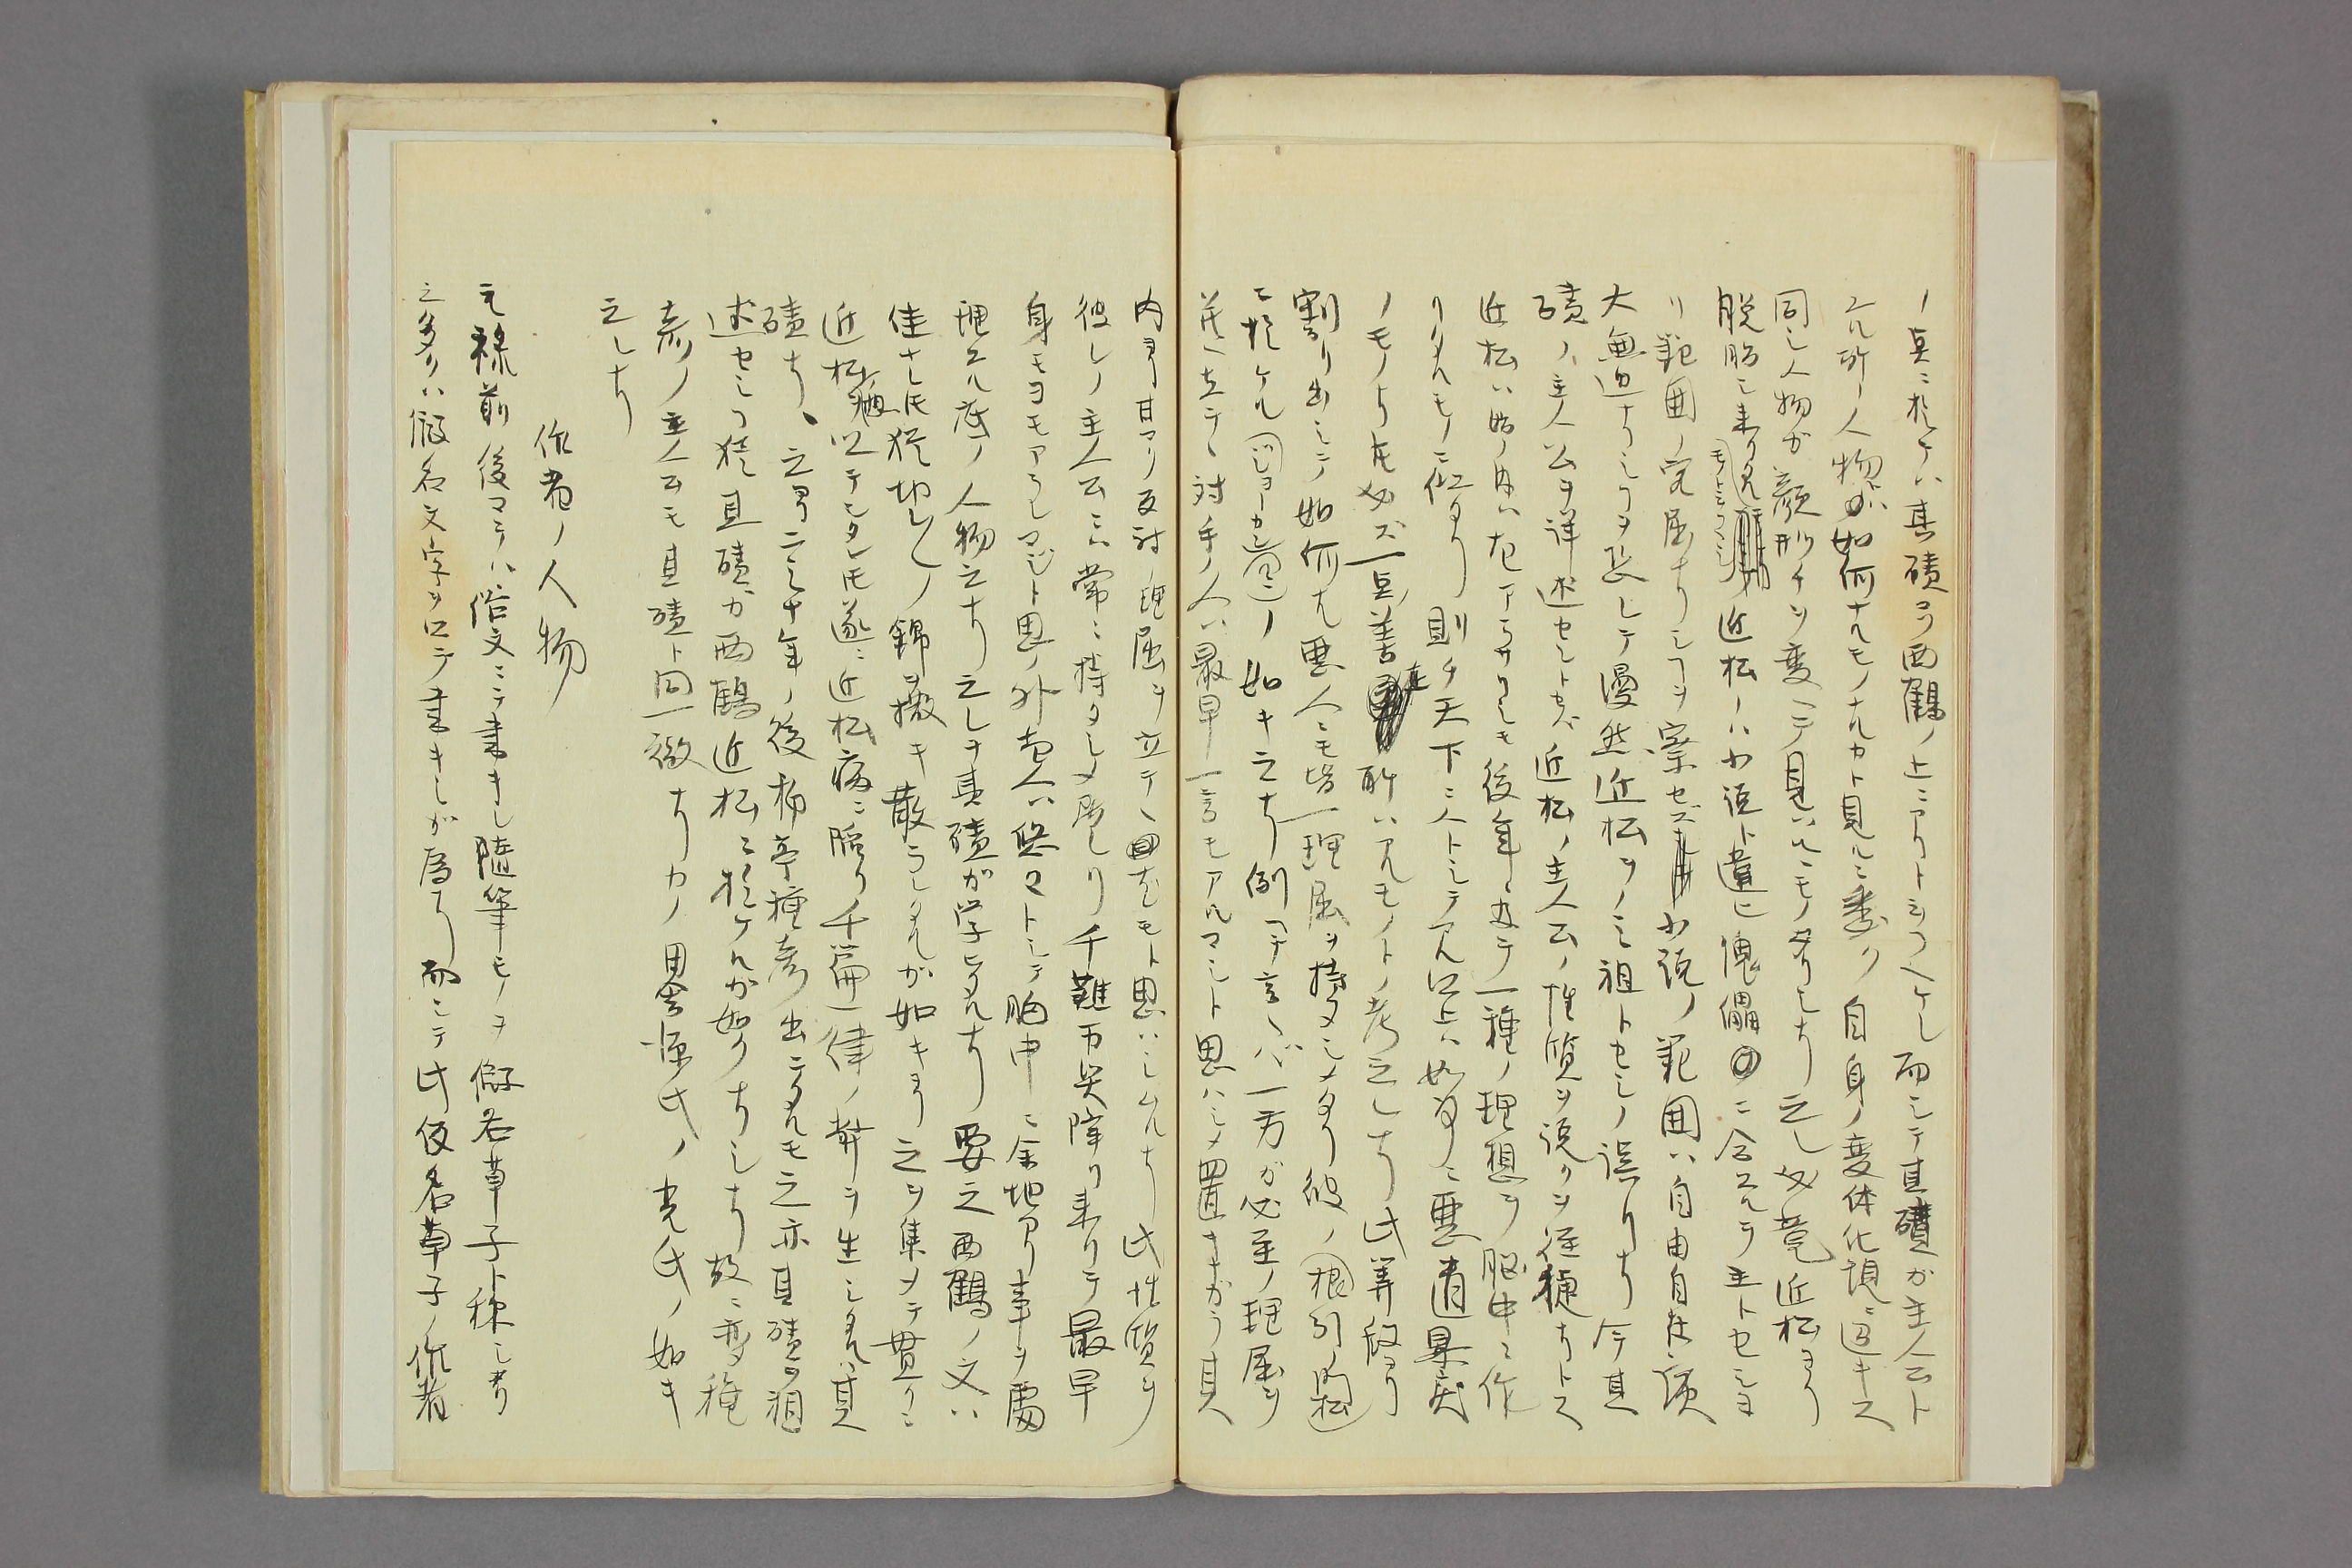 ノ点ニ於ケハ其磧ヲ西鶴ノ上ニアリトシフヘケレ而シテ其磧ガ主人公ト
スル所ノ人物ガ如何ナルモノナルカト見ルニ委ク自身ノ変体化現ニ過キス
同シ人物ガ顔形チヲ変ヘテ見ハルニモノ多シナリ之レ必竟近松ヨリ
脱胎シ来リタル 近松ノハ小説ト違ヒ傀儡ニ合スルヲ主トセシヨ
リ範囲ノ完屈ナリシコヲ察セズ小説ノ範囲ハ自由自在ニ演
大無辺ナリシコヲ忘レテ漫然近松ヲノミ祖トセシノ誤リナリ今其
磧ノ主人公ヲ詳述セントセバ近松ノ主人公ノ性質ヲ説クヲ径捷ナリトス
近松ハ始ノ内ハ左アラサリシモ後年ニ至テ一種ノ理想ヲ脳中ニ作
リタルモノニ似タリ則チ天下ニ人トシテアル以上ハ如何ニ悪道暴戻
ノモノナリトモ必ズ一点善ノ所ハアルモノトノ考之レナリ此筆段ヨリ
割リ出シテ如何ナル悪人ニモ皆一理屈ヲ持タシメタリ彼ノ根引ノ門松
ニ於ケルノ如キ之ナリ例ヘテ言ヘバ一方ガ必至ノ理屈ヲ
並ヘ立テヽ対手ノ人ハ最早一言モアルマシト思ハシメ置キながラ其
内ヨリ甘マリ反対ノ理屈ヲ立テヽ図尤モト思ハシムルナリ此性質ヲ
彼レノ主人公ニハ常ニ持タシメ居レリ千難万災降リ来リテ最早
身モヨモアラレマジト思ノ外本人ハ悠々トシテ胸中ニ余地アリ事ヲ處
理スル底ノ人物之ナリ之レヲ其磧ガ学ヒタルナリ要之西鶴ノ文ハ
佳ナレ𪜈猶切レ〳〵ノ錦ヲ撒キ散ラシタルガ如キヨリ之ヲ集メテ貫クニ
近松癖以テシタレ𪜈遂ニ近松病ニ陥リ千篇一律ノ弊ヲ生シタルハ其
磧ナリ、之ヨリ二三十年ノ後柳亭種彦出ニタルモ之亦其磧ヲ祖
述セシコ猶其磧ガ西鶴近松ニ於ケルガ如クナリシナリ故ニ種
彦ノ主人公モ其磧ト同一徹ナリカノ田舎源氏ノ光氏ノ如キ
之レナリ
作者ノ人物
元禄前後マテハ俗文ニテ書キし随筆モノヲ仮名草子ト称シタリ
之多クハ仮名文字ヲ以テ書キしが為ナリ而シテ此仮名草子ノ作者